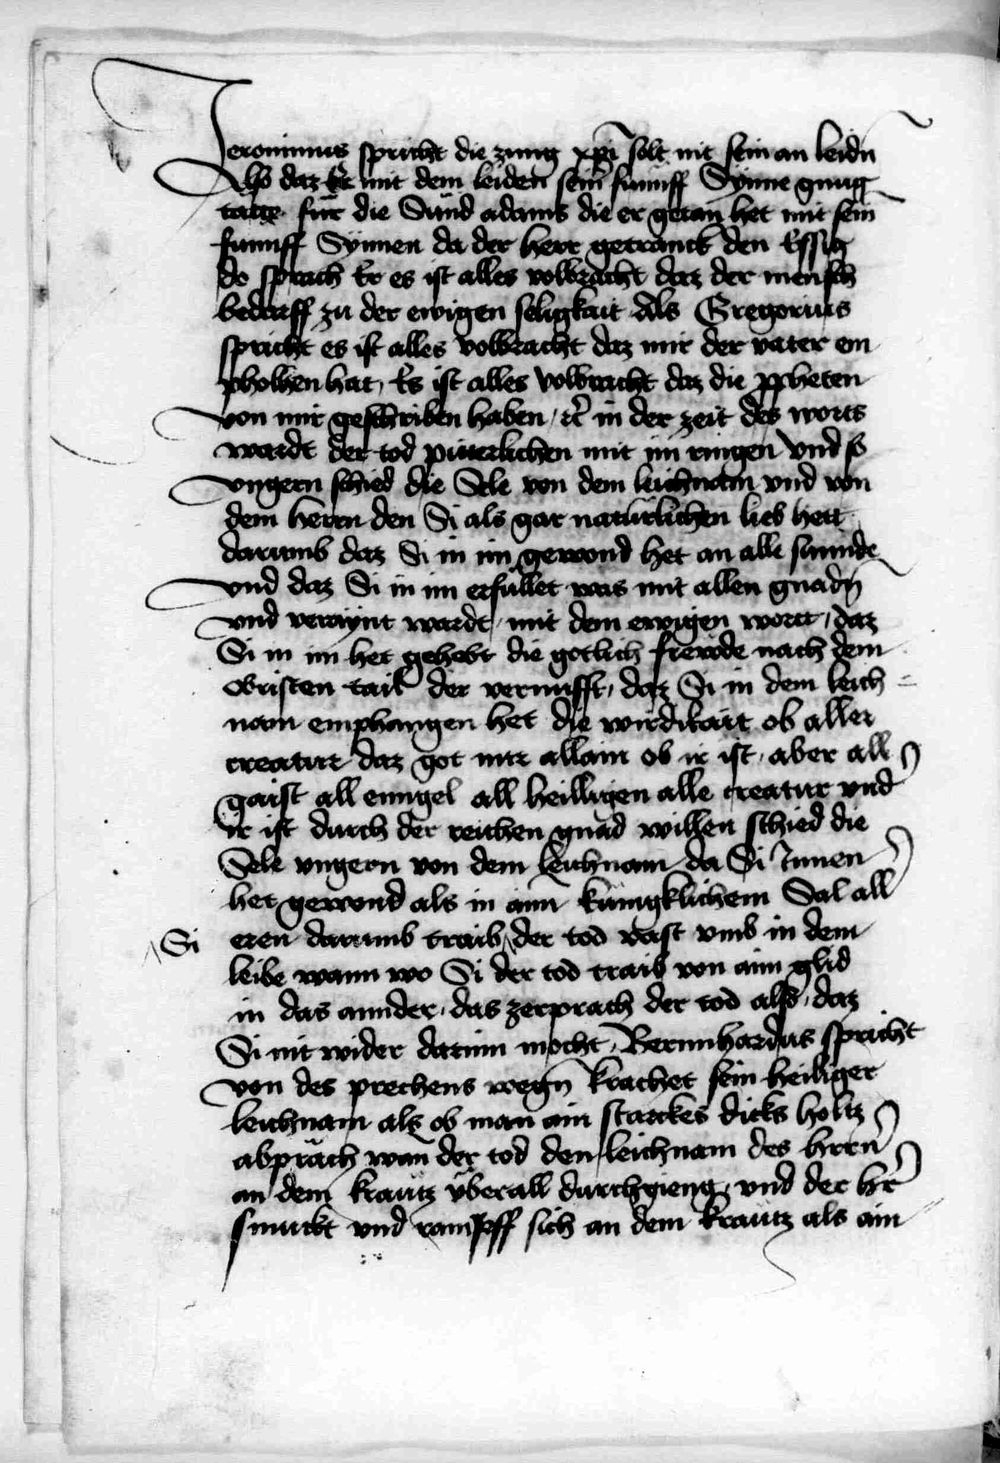 Jeronimus spricht die zung xpi solt nit sein an leidn
Also daz Er mit dem leiden seinr funnff Synne gnug
tätte für die Sünd adams die er getan het mit sein
funnff Synnen da der herr getranck den Essich
do sprach Er es ist alles volbracht daz der mensch
bedarff zu der ewigen seligkait Als Gregorius
spricht es ist alles volbracht daz mir der vater em
pholhen hat, Es ist alles volbracht daz die ppheten
von mir geschriben haben, in der zeit des worts
wardt der tod pitterlichen mit im ringen Vnd so
vngern schied die Sele von dem leichnam vnd von
dem herrn den Si als gar natürlichen lieb hett
darumb daz Si in im gewond het an alle sunnde
vnd daz Si in im erfüllet was mit allen gnadn
vnd veraynt wardt, mit dem ewigen wortt, daz
Si in im het gehebt die gotlich frewde nach dem
obristen tail der vernufft, daz Si in dem leich=
nam emphangen het die wirdikait ob aller
creatur daz got nur allain ob ir ist, aber all
gaist all enngel all heilligen alle creatur vnd
ir ist durch der reichen gnad willen schied die
Sele vngern von dem leichnam da Si Innen
het gewond als in aim künigklichem Sal all
Si eren darumb traib der tod vast vmb in dem
leibe wann wo Si der tod traib von aim glid
in das annder, das zerprach der tod alls, daz
Si nit wider darinn mocht, Bernnhardus spricht
von des prechens wegn krachet sein heiliger
leichnam als ob man ain starckes dicks holtz
abpräch wan der tod den leichnam des hrrn
an dem kräutz überall durchgieng, vnd der hr
smuckt vnd rampff sich an dem kräutz als ain